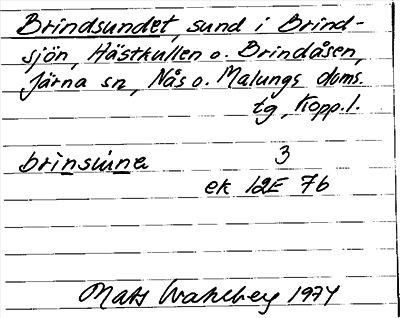 Brindsundet, sund i Brind-
sjön, Hästkullen o. Brindåsen,
Järna sn, Nås o. Malungs doms.
tg, Kopp. l.
brinsunə 3
ek 12E 7b
Mats Wahlberg 1974